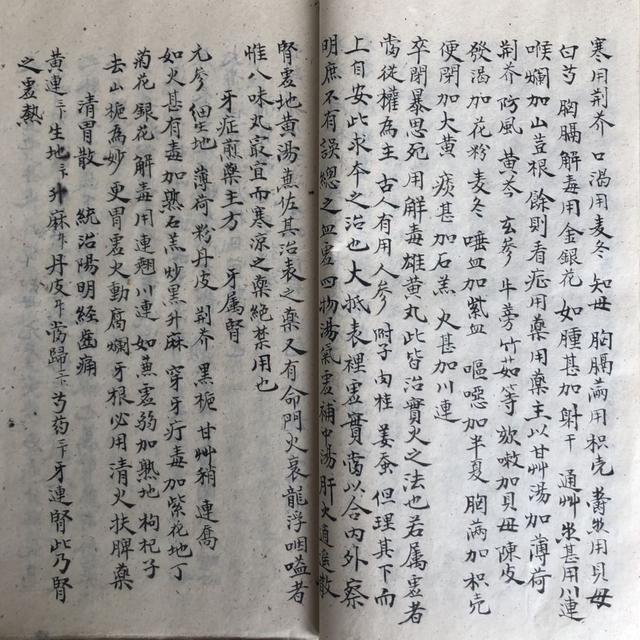 寒用荆芥 口渴用麦冬 知母 胸膈满用枳壳 用贝母
白芍 胸膈解毒用金銀花 如腫甚加射干 通艸 甚用川連
喉爛加山荳根 餘則看症用藥主以甘艸湯加薄荷
荆芥 防風 黃芩 玄參 牛蒡 竹茹等 咳嗽加貝母 陳皮
發渴加花粉 麦冬 唾血加紫 嘔噁加半夏 胸满加枳壳
便閉加大黃 痰甚加石羔 火甚加川連
卒閉暴思死 用解毒雄黃丸 此皆治實火之法也 若属虚者
當從權為主 古人有用人參 附子 肉桂 姜 但理其下而
上自安此求本之治也 大抵表裡虚實當以合內外察
明庶不有誤總之血虚四物湯氣虚補中湯肝火逍遥散
腎虚地黃湯 佐其治表之藥又有命門火衰龍浮咽嗌者
惟八味丸最宜而寒凉之藥絶禁用也
牙症煎藥主方 牙属腎
元參 細生地 薄荷 丹皮 荆芥 黑梔 甘艸稍 連
如火甚有毒加熟石羔 炒黑升麻 穿牙疔毒加紫花地丁
菊花 銀花 解毒用連翹 川連 如 虚弱加熟地 枸杞子
去山梔為妙 更胃虚火動腐爛牙根必用清火扶脾藥
清胃散 統治陽明經齒痛
黃連 生地 升麻 丹皮 當歸 芍药 牙連腎此乃腎
之虚熱